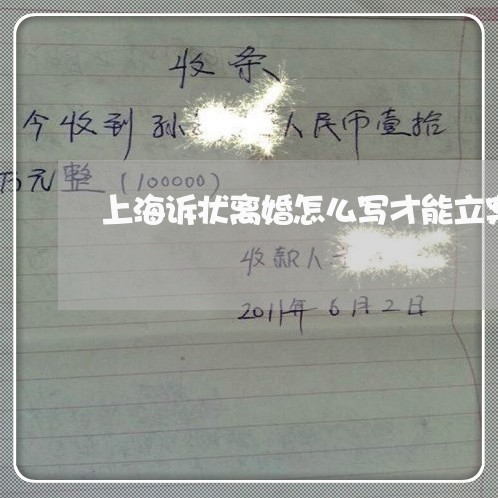 收条
今收到孙 人民币壹拾
万元整(100000)
上海诉状离婚怎么写才能立
收款人
2011年6月2日